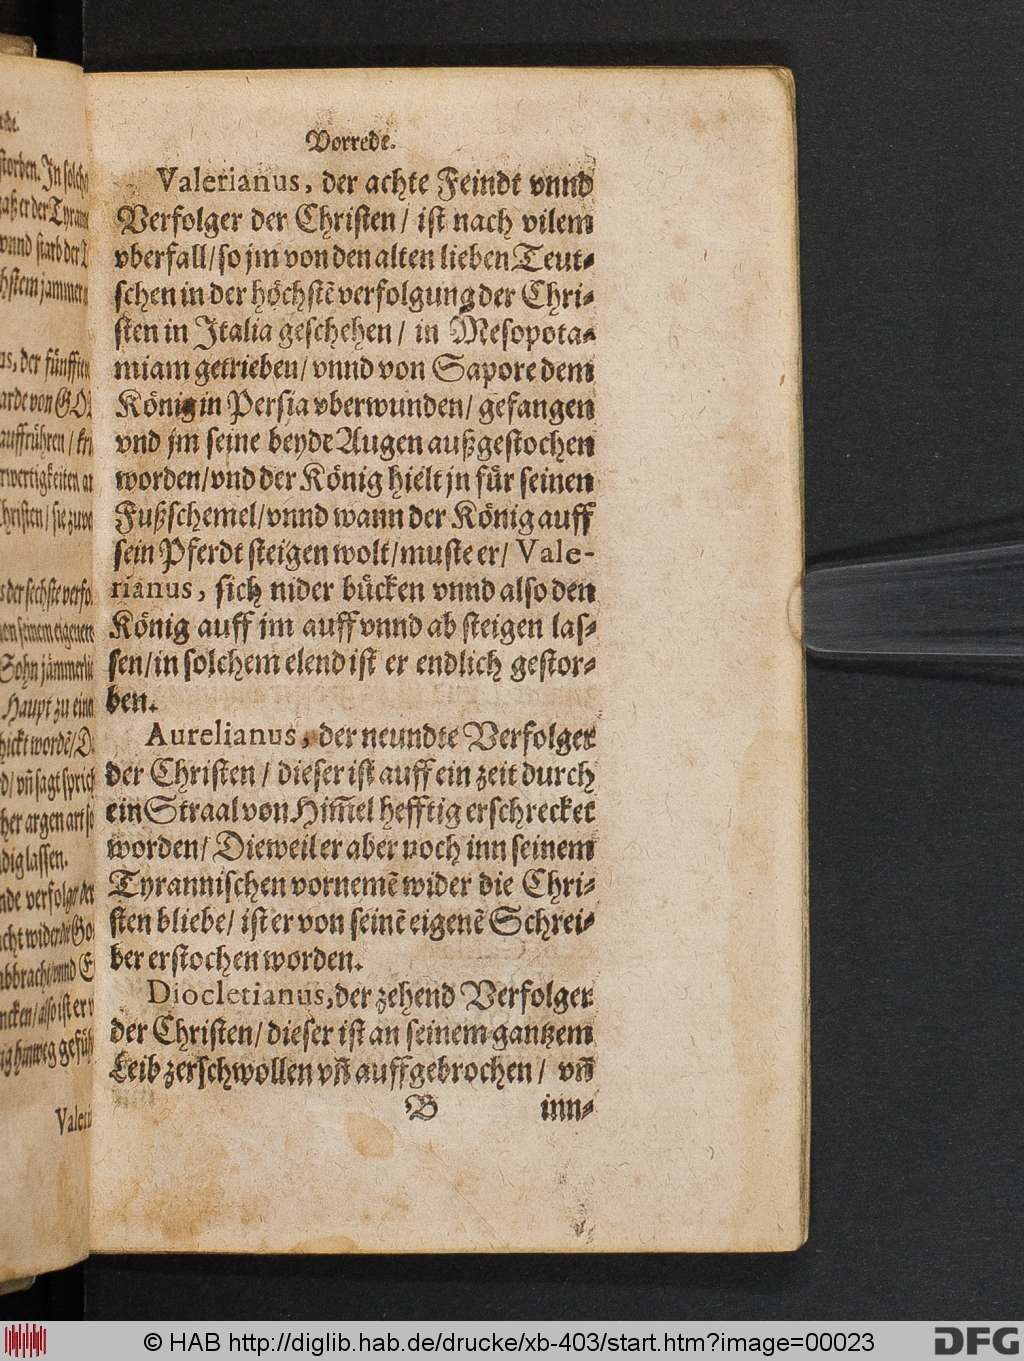 Vorrede.
Valerianus, der achte Feindt vnnd
Verfolger der Christen/ ist nach vilem
vberfall/so jm von den alten lieben Teut-
schen in der höchstē verfolgung der Chri-
sten in Italia geschehen/ in Mesopota-
miam getrieben/ vnnd von Sapore dem
König in Persia vberwunden/ gefangen
vnd jm seine beyde Augen außgestochen
worden/vnd der König hielt jn für seinen
Fußschemel/vnnd wann der König auff
sein Pferdt steigen wolt/muste er/ Vale-
rianus, sich nider bücken vnnd also den
König auff jm auff vnnd ab steigen las-
sen/in solchem elend ist er endlich gestor-
ben.
Aurelianus, der neundte Verfolger
der Christen/ dieser ist auff ein zeit durch
ein Straal von Him̄el hefftig erschrecket
worden/ Dieweil er aber noch inn seinem
Tyrannischen vornemē wider die Chri-
sten bliebe/ ist er von seinē eigenē Schrei-
ber erstochen worden.
Diocletianus, der zehend Verfolger
der Christen/ dieser ist an seinem gantzem
Leib zerschwollen vn̄ auffgebrochen/ vn̄
B inn-
storben. In solche
vnnd starb der
der fünffte
arde von GO
auffrühren/
der sechste
Sohn
Haupt zu
sagt
her argen art
dig lassen.
nde verfolger der
hinweg
© HAB http://diglib.hab.de/drucke/xb-403/start.htm?image=00023
DFG